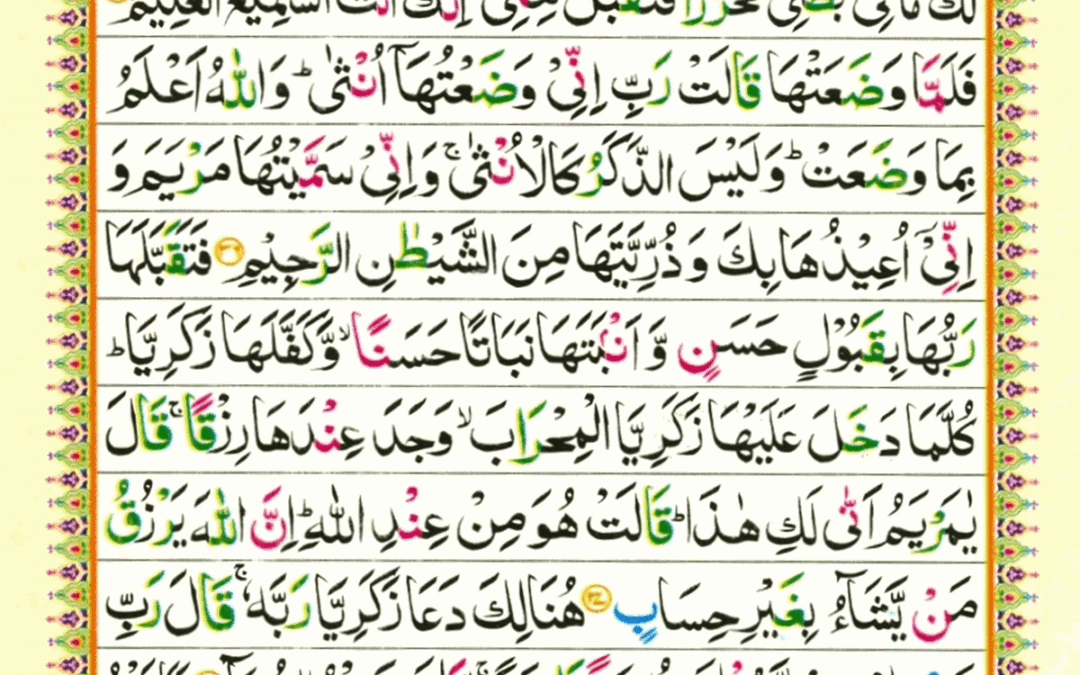 لَكَ مَا فِیْ بَطْنِیْ مُحَرَّرًا فَتَقَبَّلْ مِنِّیْ ۚ اِنَّكَ اَنْتَ السَّمِیْعُ الْعَلِیْمُ
فَلَمَّا وَضَعَتْهَا قَالَتْ رَبِّ اِنِّیْ وَضَعْتُهَاۤ اُنْثٰی ؕ وَاللّٰهُ اَعْلَمُ
بِمَا وَضَعَتْ ؕ وَلَیْسَ الذَّكَرُ كَالْاُنْثٰی ۚ وَاِنِّیْ سَمَّیْتُهَا مَرْیَمَ وَ
اِنِّیْۤ اُعِیْذُهَا بِكَ وَ ذُرِّیَّتَهَا مِنَ الشَّیْطٰنِ الرَّجِیْمِ ۝۳۶ فَتَقَبَّلَهَا
رَبُّهَا بِقَبُوْلٍ حَسَنٍ وَّ اَنْۢبَتَهَا نَبَاتًا حَسَنًا ۙ وَّكَفَّلَهَا زَكَرِیَّا ؕ
كُلَّمَا دَخَلَ عَلَیْهَا زَكَرِیَّا الْمِحْرَابَ ۙ وَجَدَ عِنْدَهَا رِزْقًا ۚ قَالَ
یٰمَرْیَمُ اَنّٰی لَكِ هٰذَا ؕ قَالَتْ هُوَ مِنْ عِنْدِ اللّٰهِ ؕ اِنَّ اللّٰهَ یَرْزُقُ
مَنْ یَّشَآءُ بِغَیْرِ حِسَابٍ ۝۳۷ هُنَالِكَ دَعَا زَكَرِیَّا رَبَّهٗ ۚ قَالَ رَبِّ